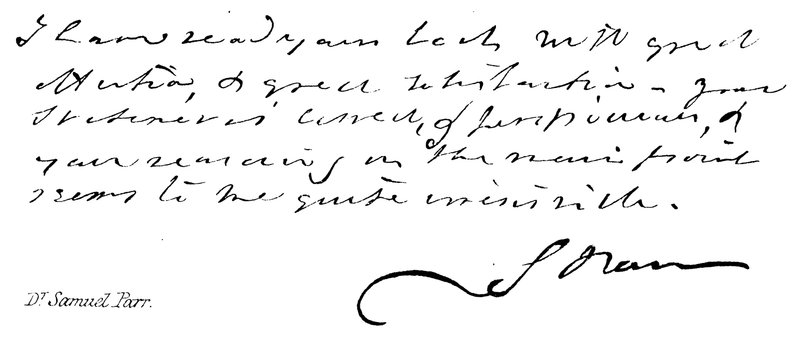 I have read your book with great
attention, & great satisfaction – your
Statement is correct, & perspicuous, &
your reasoning on the main point
seems to me quite irresistible.
S Parr
Dr Samuel Parr.